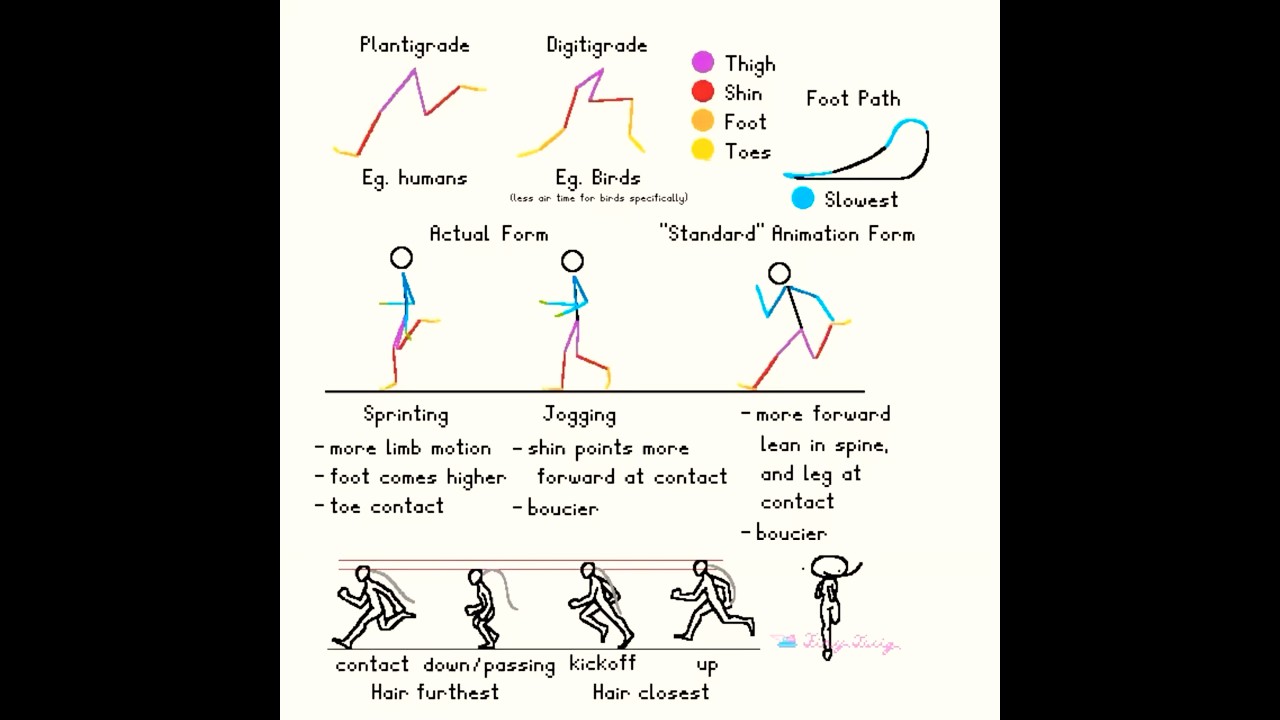 Plantigrade
Digitigrade
Thigh
Shin
Foot
Toes
Foot Path
Eg. humans
Eg. Birds
(less air time for birds specifically)
Slowest
Actual Form
"Standard" Animation Form
Sprinting
- more limb motion
- foot comes higher
- toe contact
Jogging
- shin points more
forward at contact
- boucier
- more forward
lean in spine,
and leg at
contact
- boucier
contact
down/passing
kickoff
up
Hair furthest
Hair closest